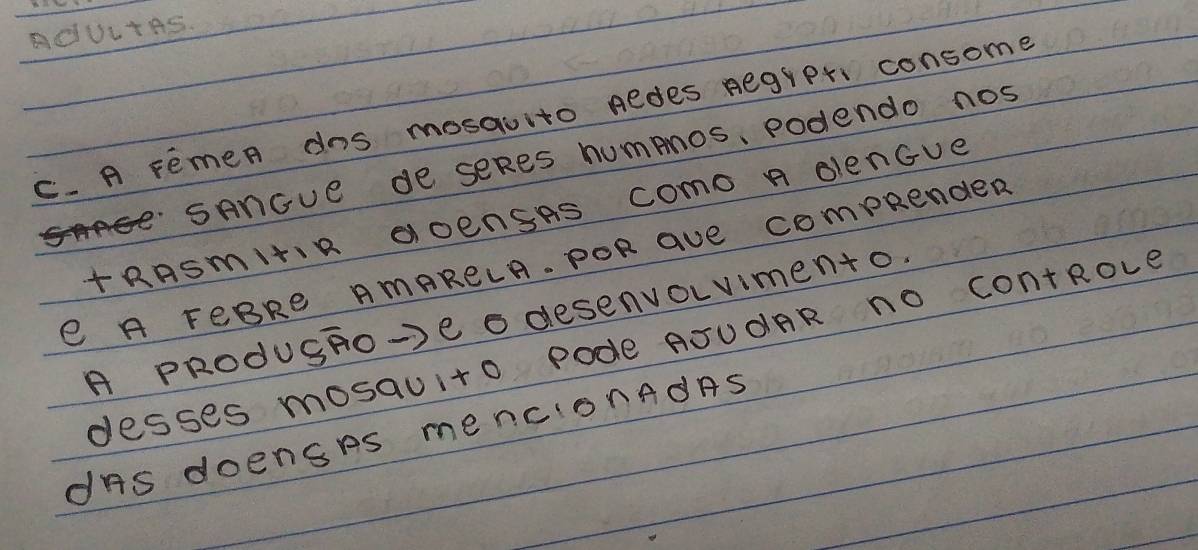 ADULTAS.
C- A FêmeA dos mosquito Aedes Aegypti consome
SANGUE de SERES humAnos, podendo nos
tRASmitiR doensAS como A dengue
e A FeBRe AmARELA. POR que compRendeR
A PRODUSÃO → e o desenvolvimento.
desses mosquito pode AJUdAR no contRole
dAS doensAS mencionAdAS